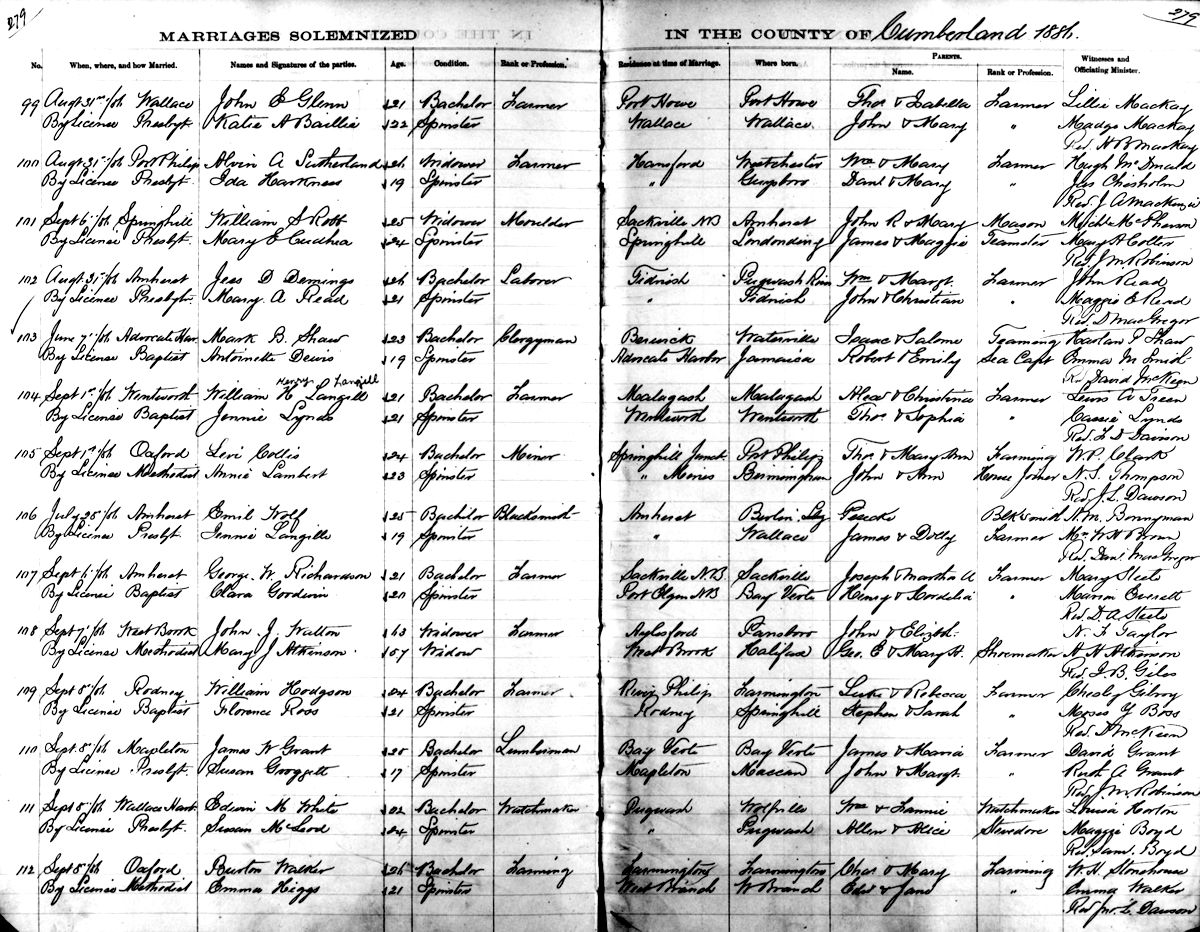 279 279
MARRIAGES SOLEMNIZED IN THE COUNTY OF Cumberland 1886.
No. When, where, and how Married. Names and Signatures of the parties. Age. Condition. Rank or Profession. Residence at time of Marriage. Where born. PARENTS. Name. Rank or Profession. Witnesses and Officiating Minister.
99 Augt 31st /86 Wallace John E Glenn 21 Bachelor Farmer Port Howe Port Howe Thos & Isabella Farmer Lillie Mackay
By License Presbyt. Katie A Baillie 22 Spinster Wallace Wallace. John & Mary " Madge Mackay
Rev. H B Mackay
100 Augt 31st /86 Port Philip Alvin A Sutherland 26 Widower Farmer Hansford Westchester Wm & Mary Farmer Hugh McDonald
By License Presbyt Ida Harkness 19 Spinster " Danl & Mary " Jas Chesholm
Rev. J A Mackenzie
101 Sept 6 /86 Springhill William S Robb 25 Widower Moulder Sackville NB Amherst John R & Mary Mason McPherson
By License Presbyt. Mary E 24 Spinster Springhill James & Maggie Teamster Mary H
Rev. J M Robinson
102 Augt 31st /86 Amherst Jess D Demings 26 Bachelor Laborer Tidnish Pugwash River Wm & Margt. Farmer John Read
By License Presbyt. Mary A Read 21 Spinster " Tidnish John & Christian " Maggie E Read
Rev. D MacGregor
103 June 7 /86 Advocate Har. Mark B. Shaw 23 Bachelor Clergyman Berwick Waterville Isaac & Salome Farming Harlan P Shaw
By License Baptist Antoinette Dewis 19 Spinster Advocate Harbor Jamaica Robert & Emily Sea Capt Emma M Smith
Rev David McKeen
104 Sept 1st /86 Wentworth William H Langill Henry Langill 21 Bachelor Farmer Malagash Malagash Alex & Christina Farmer Lewis
By License Baptist Jennie Lynds 21 Spinster Wentworth Wentworth Thos & Sophia " Cassie Lynds
Rev. F D Davison
105 Sept 1st /86 Oxford Levi Collis 24 Bachelor Miner Springhill Junct Port Philip Thos & Mary Ann Farming W. P. Clark
By License Methodist Annie Lambert 23 Spinster " Mines Birmingham John & Ann House Joiner N. S. Thompson
Rev J. L. Dawson
106 July 28 /86 Amherst Emil Wolf 25 Bachelor Blacksmith Amherst Berlin Blksmith A. M. Bonnyman
By License Presbyt. Jennie Langille 19 Spinster " Wallace James & Dolly Farmer Mrs W H Brown
Rev. Danl MacGregor
107 Sept 6 /86 Amherst George W. Richardson 21 Bachelor Farmer Sackville N.B. Sackville Joseph & Martha A Farmer Mary Steele
By License Baptist Clara Goodwin 20 Spinster Port Elgin NB Bay Verte Henry & Cordelia "
Rev. D. A. Steele
108 Sept 7 /86 West Brook John J. Walton 63 Widower Farmer Aylesford Parrsboro John & Elizth. N. F Taylor
By License Methodist Mary J Atkinson 57 Widow West Brook Halifax Geo. E & Mary A. Shoemaker A H Atkinson
Rev J. B. Giles
109 Sept 8 /86 Rodney William Hodgson 24 Bachelor Farmer River Philip Farmington Luke & Rebecca Farmer Chesley Gilroy
By License Baptist Florence Ross 21 Spinster Rodney Springhill Stephen & Sarah " Moses Y Boss
Rev. D McKeen
110 Sept. 8 /86 Mapleton James W Grant 25 Bachelor Lumberman Bay Verte Bay Verte James & Maria Farmer David Grant
By License Presbyt. Susan 17 Spinster Mapleton Maccan John & Margt. " Ruth A Grant
Rev J. M. Robinson
111 Sept 8 /86 Wallace Harb. Edwin M White 22 Bachelor Watchmaker Pugwash Wolfville Wm & Fannie Watchmaker Louisa Horton
By License Presbyt. Susan McLeod 24 Spinster " Pugwash Allen & Alice Stevedore Maggie Boyd
Rev. Saml. Boyd
112 Sept 8 /86 Oxford Burton Walker 26 Bachelor Farming Farmington Farmington Chas & Mary Farming W. H. Stonehouse
By License Methodist Emma Higgs 21 Spinster West Branch W Branch Edw & Jane " Emma Walker
Rev Jno. L. Dawson